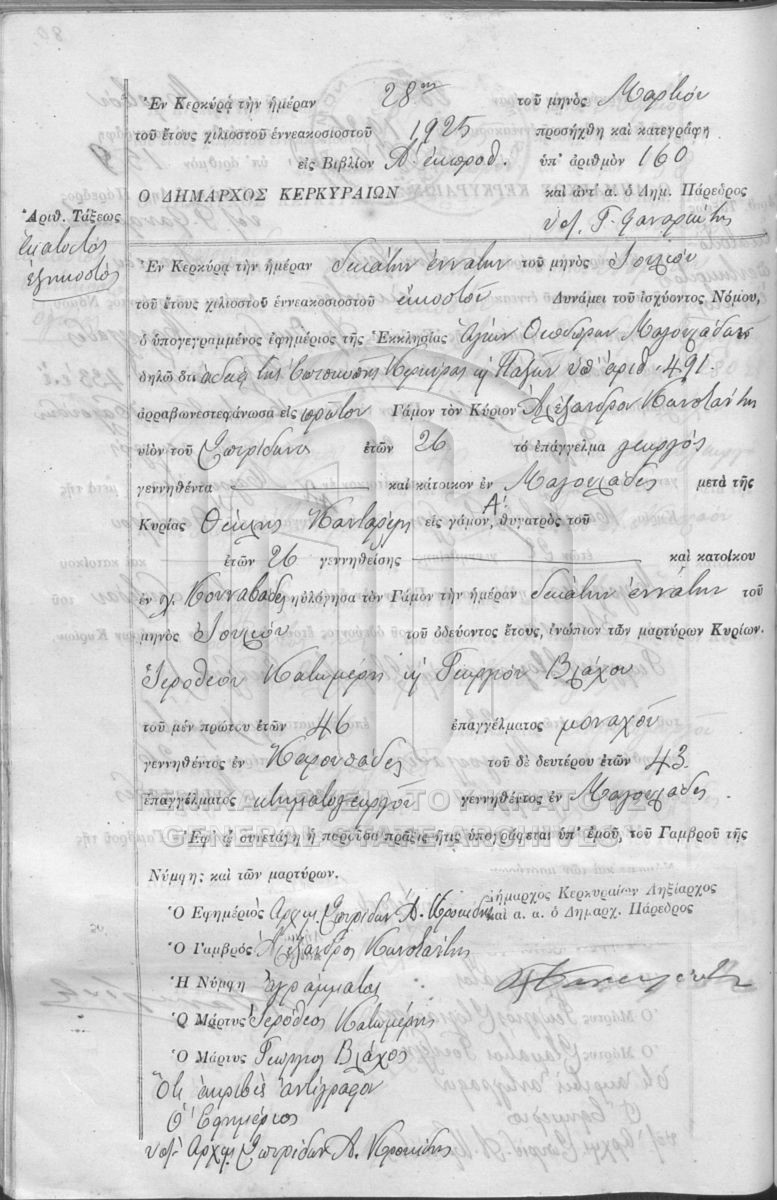 Ἐν Κερκύρᾳ τὴν ἡμέραν 28ην τοῦ μηνὸς Μαρτίου
τοῦ ἔτους χιλιοστοῦ ἐννεακοσιοστοῦ 1925 προσήχθη καὶ κατεγράφη
εἰς Βιβλίον Α. ἐκπροθ. ὑπ' ἀριθμὸν 160
Ο ΔΗΜΑΡΧΟΣ ΚΕΡΚΥΡΑΙΩΝ καὶ ἀντ' α. ὁ Δημ. Πάρεδρος
Ἀριθ. Τάξεως
ὑπ. Γ.
Ἑκατοστὸς
ἑξηκοστὸς
Ἐν Κερκύρᾳ τὴν ἡμέραν δεκάτην ἐννάτην τοῦ μηνὸς Ἰουλίου
τοῦ ἔτους χιλιοστοῦ ἐννεακοσιοστοῦ εἰκοστοῦ Δυνάμει τοῦ ἰσχύοντος Νόμου,
ὁ ὑπογεγραμμένος ἐφημέριος τῆς Ἐκκλησίας Ἁγίων Θεοδώρων Μαγουλάδων
δηλῶ ὅτι ἀδείᾳ τῆς Ἐπισκοπῆς Κερκύρας κ Παξῶν ὑπ' ἀριθ. 491.
ἀρραβωνεστεφάνωσα εἰς πρῶτον Γάμον τὸν Κύριον Ἀλέξανδρον
υἱὸν τοῦ Σπυρίδωνος ἐτῶν 26 τὸ ἐπάγγελμα γεωργὸς
γεννηθέντα καὶ κάτοικον ἐν Μαγουλάδες μετὰ τῆς
Κυρίας Θέκλης εἰς Α' γάμον, θυγατρὸς τοῦ
ἐτῶν 26 γεννηθείσης καὶ κατοίκου
ἐν χ. Κουναβάδες ηὐλόγησα τὸν Γάμον τὴν ἡμέραν δεκάτην ἐννάτην τοῦ
μηνὸς Ἰουλίου τοῦ ὁδεύοντος ἔτους, ἐνώπιον τῶν μαρτύρων Κυρίων.
Ἱεροθέου Κατωμέρη κ Γεωργίου Βλάχου
τοῦ μέν πρώτου ἐτῶν 46 ἐπαγγέλματος μοναχοῦ
γεννηθέντος ἐν Καρουσάδες τοῦ δὲ δευτέρου ἐτῶν 43.
ἐπαγγέλματος κτηματογεωργοῦ γεννηθέντος ἐν Μαγουλάδες
ΓΕΝΙΚΑ ΑΡΧΕΙΑ ΤΟΥ ΚΡΑΤΟΥΣ
GENERAL STATE ARCHIVES
Ἐφ' ᾧ συνετάγη ἡ παροῦσα πρᾶξις ἥτις ὑπογράφεται ὑπ' ἐμοῦ, τοῦ Γαμβροῦ τῆς
Νύμφης καὶ τῶν μαρτύρων.
Δήμαρχος Κερκυραίων Ληξίαρχος
Ὁ Ἐφημέριὸς Ἀρχιμ. Σπυρίδων Α.
καὶ α. α. ὁ Δημαρχ. Πάρεδρος
Ὁ Γαμβρὸς Ἀλέξανδρος
Ἡ Νύμφη Ἀγράμματος
Ὁ Μάρτυς Ἱερόθεος Κατωμέρης
Ὁ Μάρτυς Γεώργιος Βλάχος
Ὅτι ἀκριβὲς ἀντίγραφον
Ὁ Ἐφημέριος
ὑπ. Ἀρχιμ. Σπυρίδων Α.